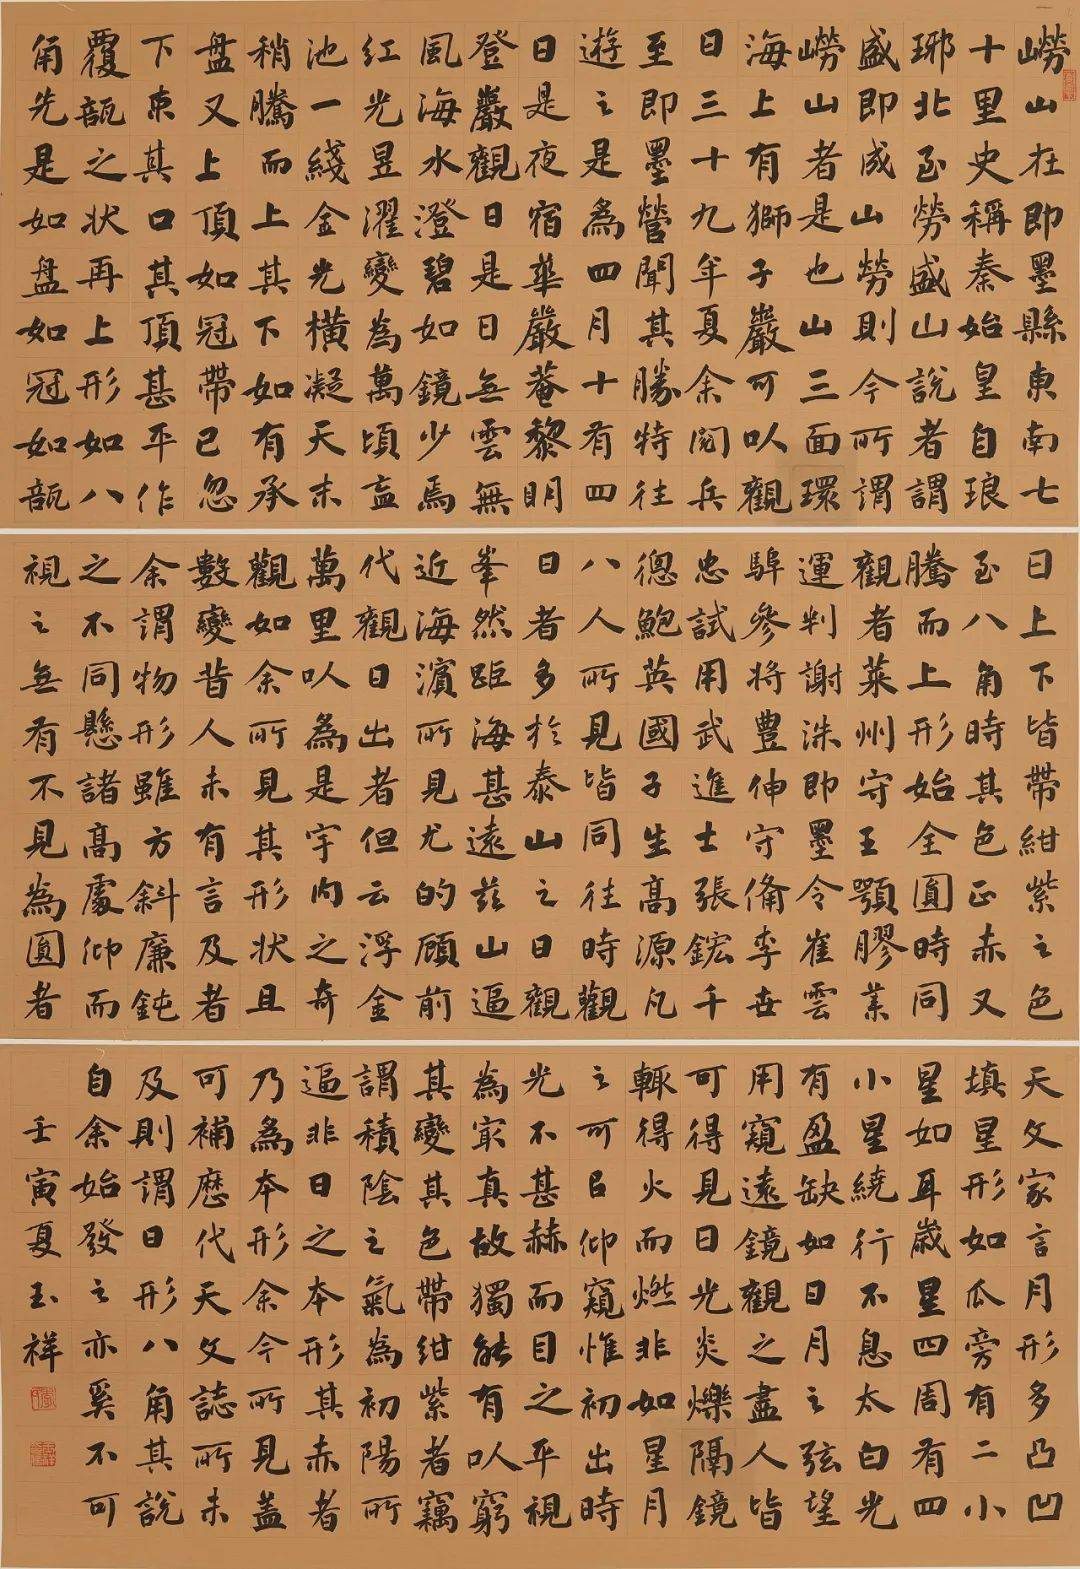 嶗山在即墨縣東南七
十里史稱秦始皇自琅
琊北至勞盛山說者謂
盛即成山勞則今所謂
嶗山者是也山三面環
海上有獅子巖可以觀
日三十九年夏余閱兵
至即墨營聞其勝特往
遊之是為四月十有四
日是夜宿華嚴菴黎明
登巖觀日是日無雲無
風海水澄碧如鏡少焉
紅光昱濯變為萬頃
池一綫金光橫凝天末
稍騰而上其下如有承
盤又上頂如冠帶已忽
下束其口其頂甚平作
覆瓿之狀再上形如八
角先是如盤如冠如瓿
日上下皆帶紺紫之色
至八角時其色正赤又
騰而上形始全圓時同
觀者萊州守王顎膠萊
運判謝洙即墨令崔雲
參將豐伸守備李世
忠試用武進士張鋐千
總鮑英國子生高源凡
八人所見皆同往時觀
日者多於泰山之日觀
峯然距海甚遠茲山逼
近海濱所見尤的顧前
代觀日出者但云浮金
萬里以為是宇內之奇
觀如余所見其形狀且
數變昔人未有言及者
余謂物形雖方斜廉鈍
之不同懸諸高處仰而
視之無有不見為圓者
天文家言月形多凸凹
填星形如瓜旁有二小
星如耳歲星四周有四
小星繞行不息太白光
有盈缺如日月之弦望
用窺遠鏡觀之盡人皆
可得見日光炎爍隔鏡
輒得火而燃非如星月
之可以仰窺惟初出時
光不甚赫而目之平視
為最真故獨能有以窮
其變其色帶紺紫者竊
謂積陰之氣為初陽所
逼非日之本形其赤者
乃為本形余今所見蓋
可補歷代天文誌所未
及則謂日形八角其說
自余始發之亦奚不可
壬寅夏玉祥